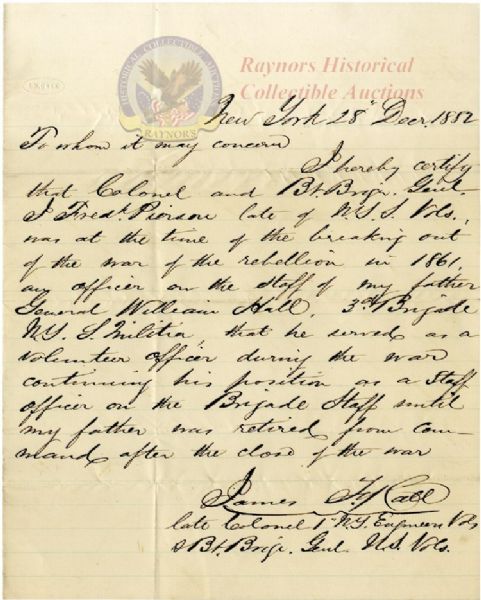 Raynors Historical
Collectible Auctions
HISTORICAL COLLECTIBLE AUCTIONS
RAYNOR'S
New York 28" Decr. 1882
To whom it may concern
I hereby certify
that Colonel and Bt. Brigr. Genl.
J. Fredk. Pierson late of N.Y.S. Vols.,
was at the time of the breaking out
of the war of the rebellion in 1861,
an officer on the Staff of my father
General William Hall, 3rd Brigade
N.Y. S. Militia that he served as a
volunteer officer during the war
continuing his position as a Staff
officer on the Brigade Staff until
my father was retired from com-
mand after the close of the war
James F. Hall
late Colonel 1st N.Y. Engineer Vols
& Bt. Brigr. Genl. U.S. Vols.